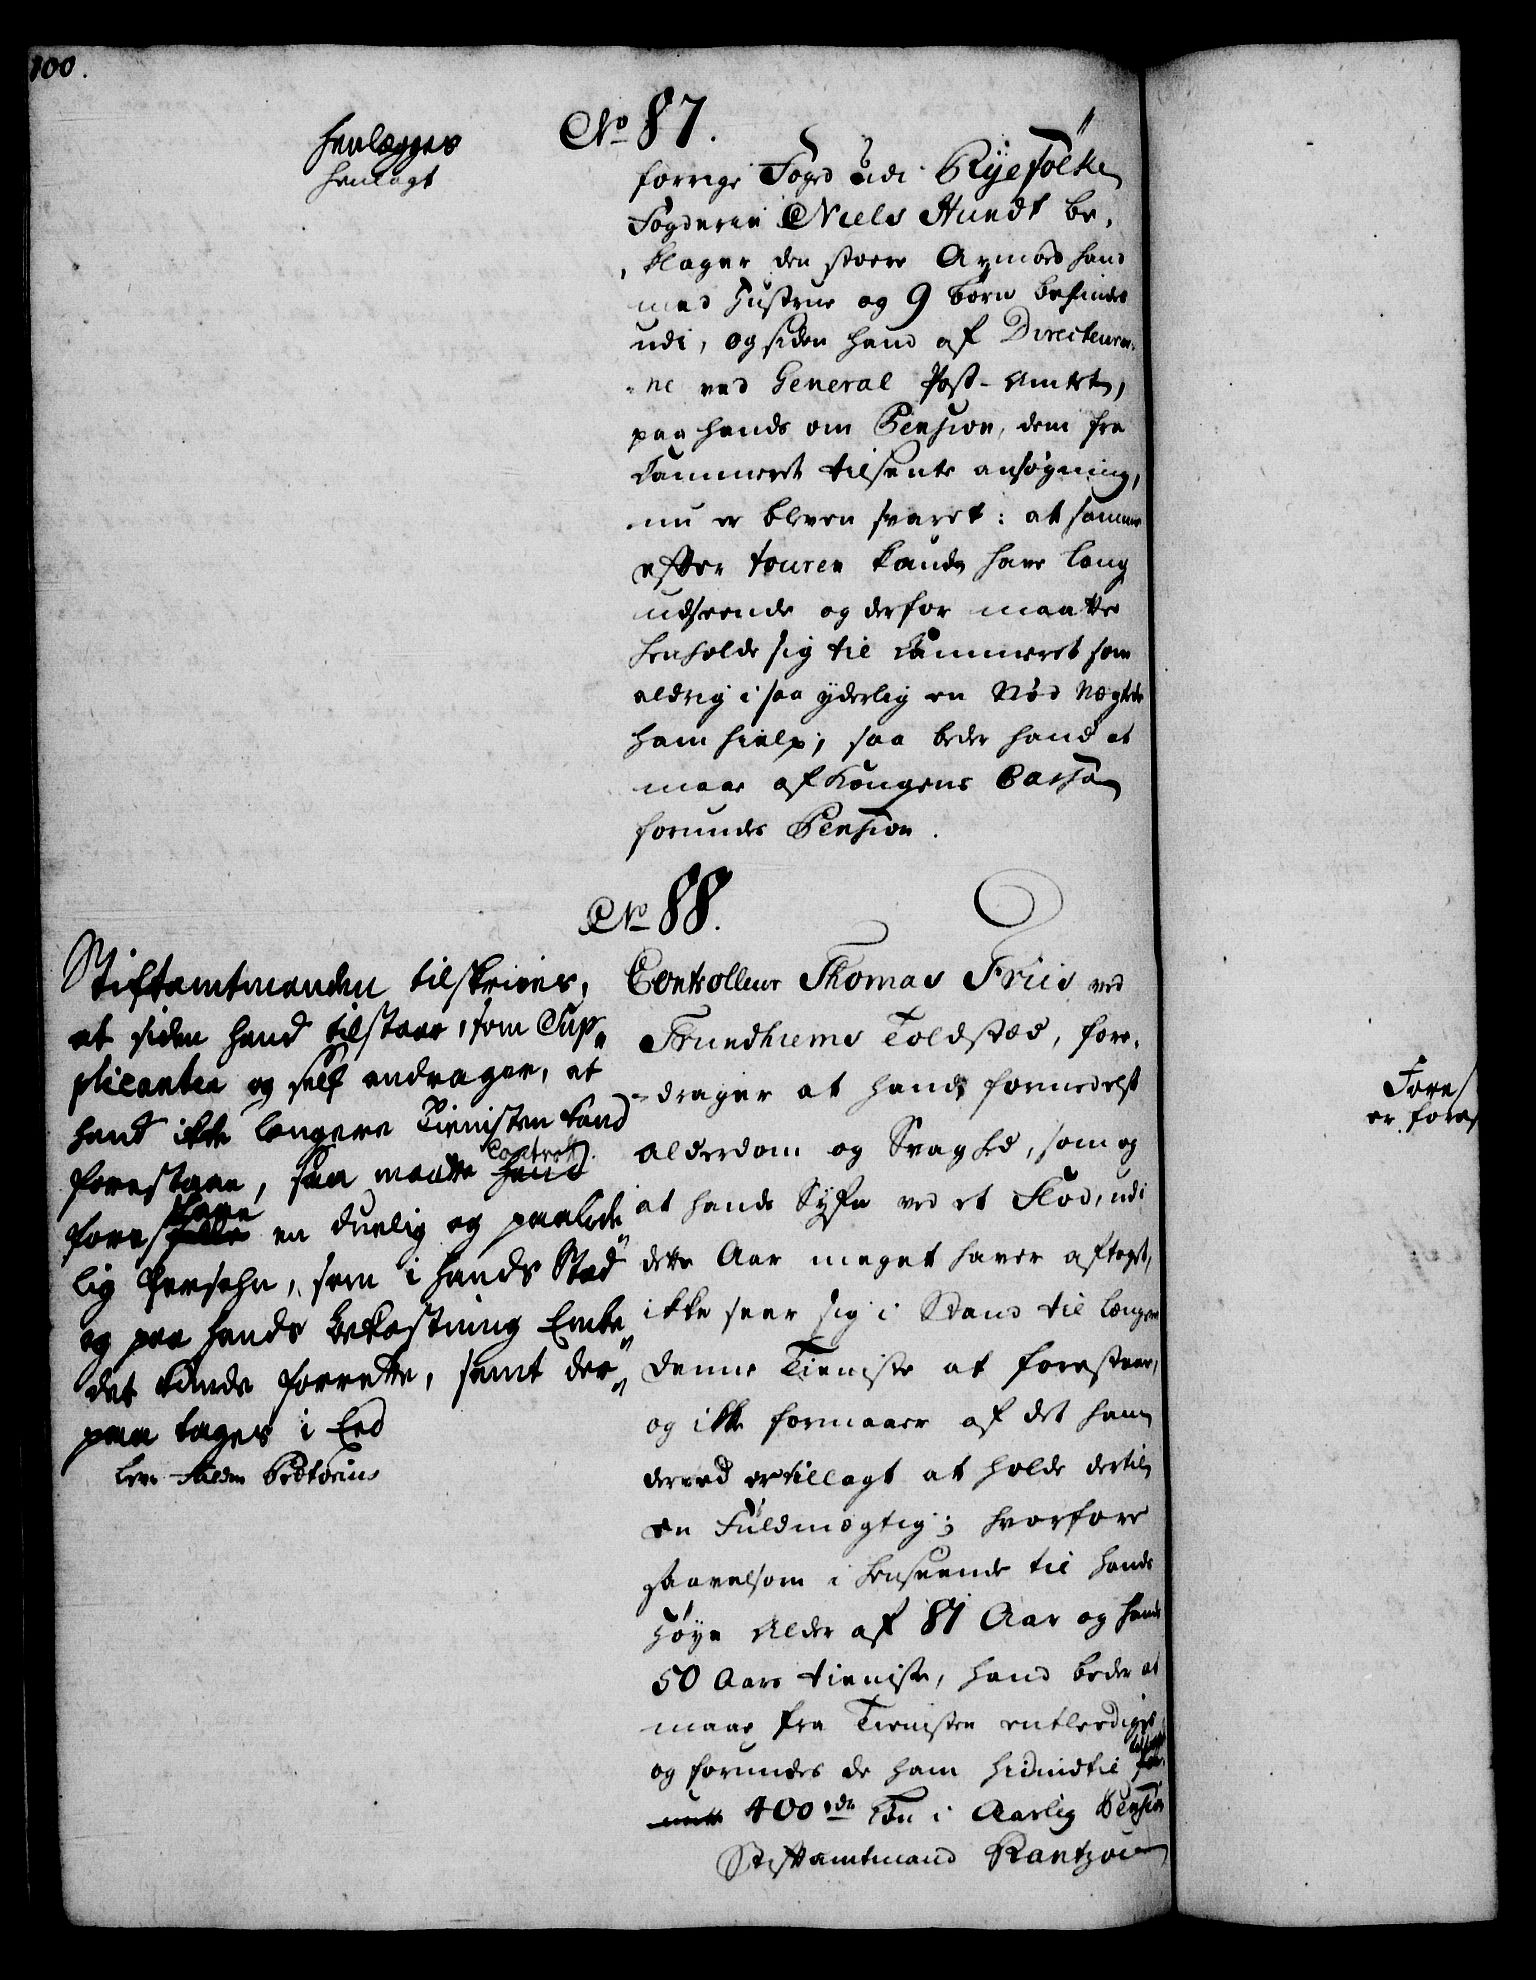 100.
No 87.
Henlægges
henlagt
forrige Foged udi Ryefolke
Fogderie Niels Hundt be¬
klager den stoere Armod hand
med Hustrue og 9 børn befindes
udi, og siden hand af Directeurer¬
ne ved General Post-Amtet,
paa hands om Pension, dem fra
Cammeret tilsente ansøgning,
nu er bleven svaret: at samme
efter touren kunde have lang
udseende og derfor maatte
henholde sig til Cammeret som
aldrig i saa yderlig en Nød nægtede
ham hielp; saa beder hand at
maae af Kongens Cassa
forundes Pension.
No 88.
Controlleur Thomas Friis ved
Trundhiems Toldsted, fore¬
drager at hand formedelst
alderdom og Svaghed, som og
at hands Syn ved et Flod, udi
dette Aar meget haver aftagt,
ikke seer sig i Stand til længer
denne Tieniste at forestaae,
og ikke formaaer af det ham
derved er tillagt at holde dertil
en Fuldmægtig; hvorfore
saavelsom i henseende til hands
Høye Alder af 81 Aar og hands
50 Aars tieniste, hand beder at
maae fra Tienisten entlediges
og forundes de ham hidindtil
400 rdr Løn i Aarlig Pension
Stiftamtmand Rantzou
Stiftamtmanden tilskrives,
at siden hand tilstaar, som Sup¬
plicanten og self andrager, at
hand ikke længere Tienisten kand
forestaae, saa maatte hand
Controll.
foreslaae en duelig og paalide¬
lig Persohn, som i hands Sted
og paa hands bekostning Embe¬
det kunde forrette, samt der¬
paa tages i Eed
Fores
er fores